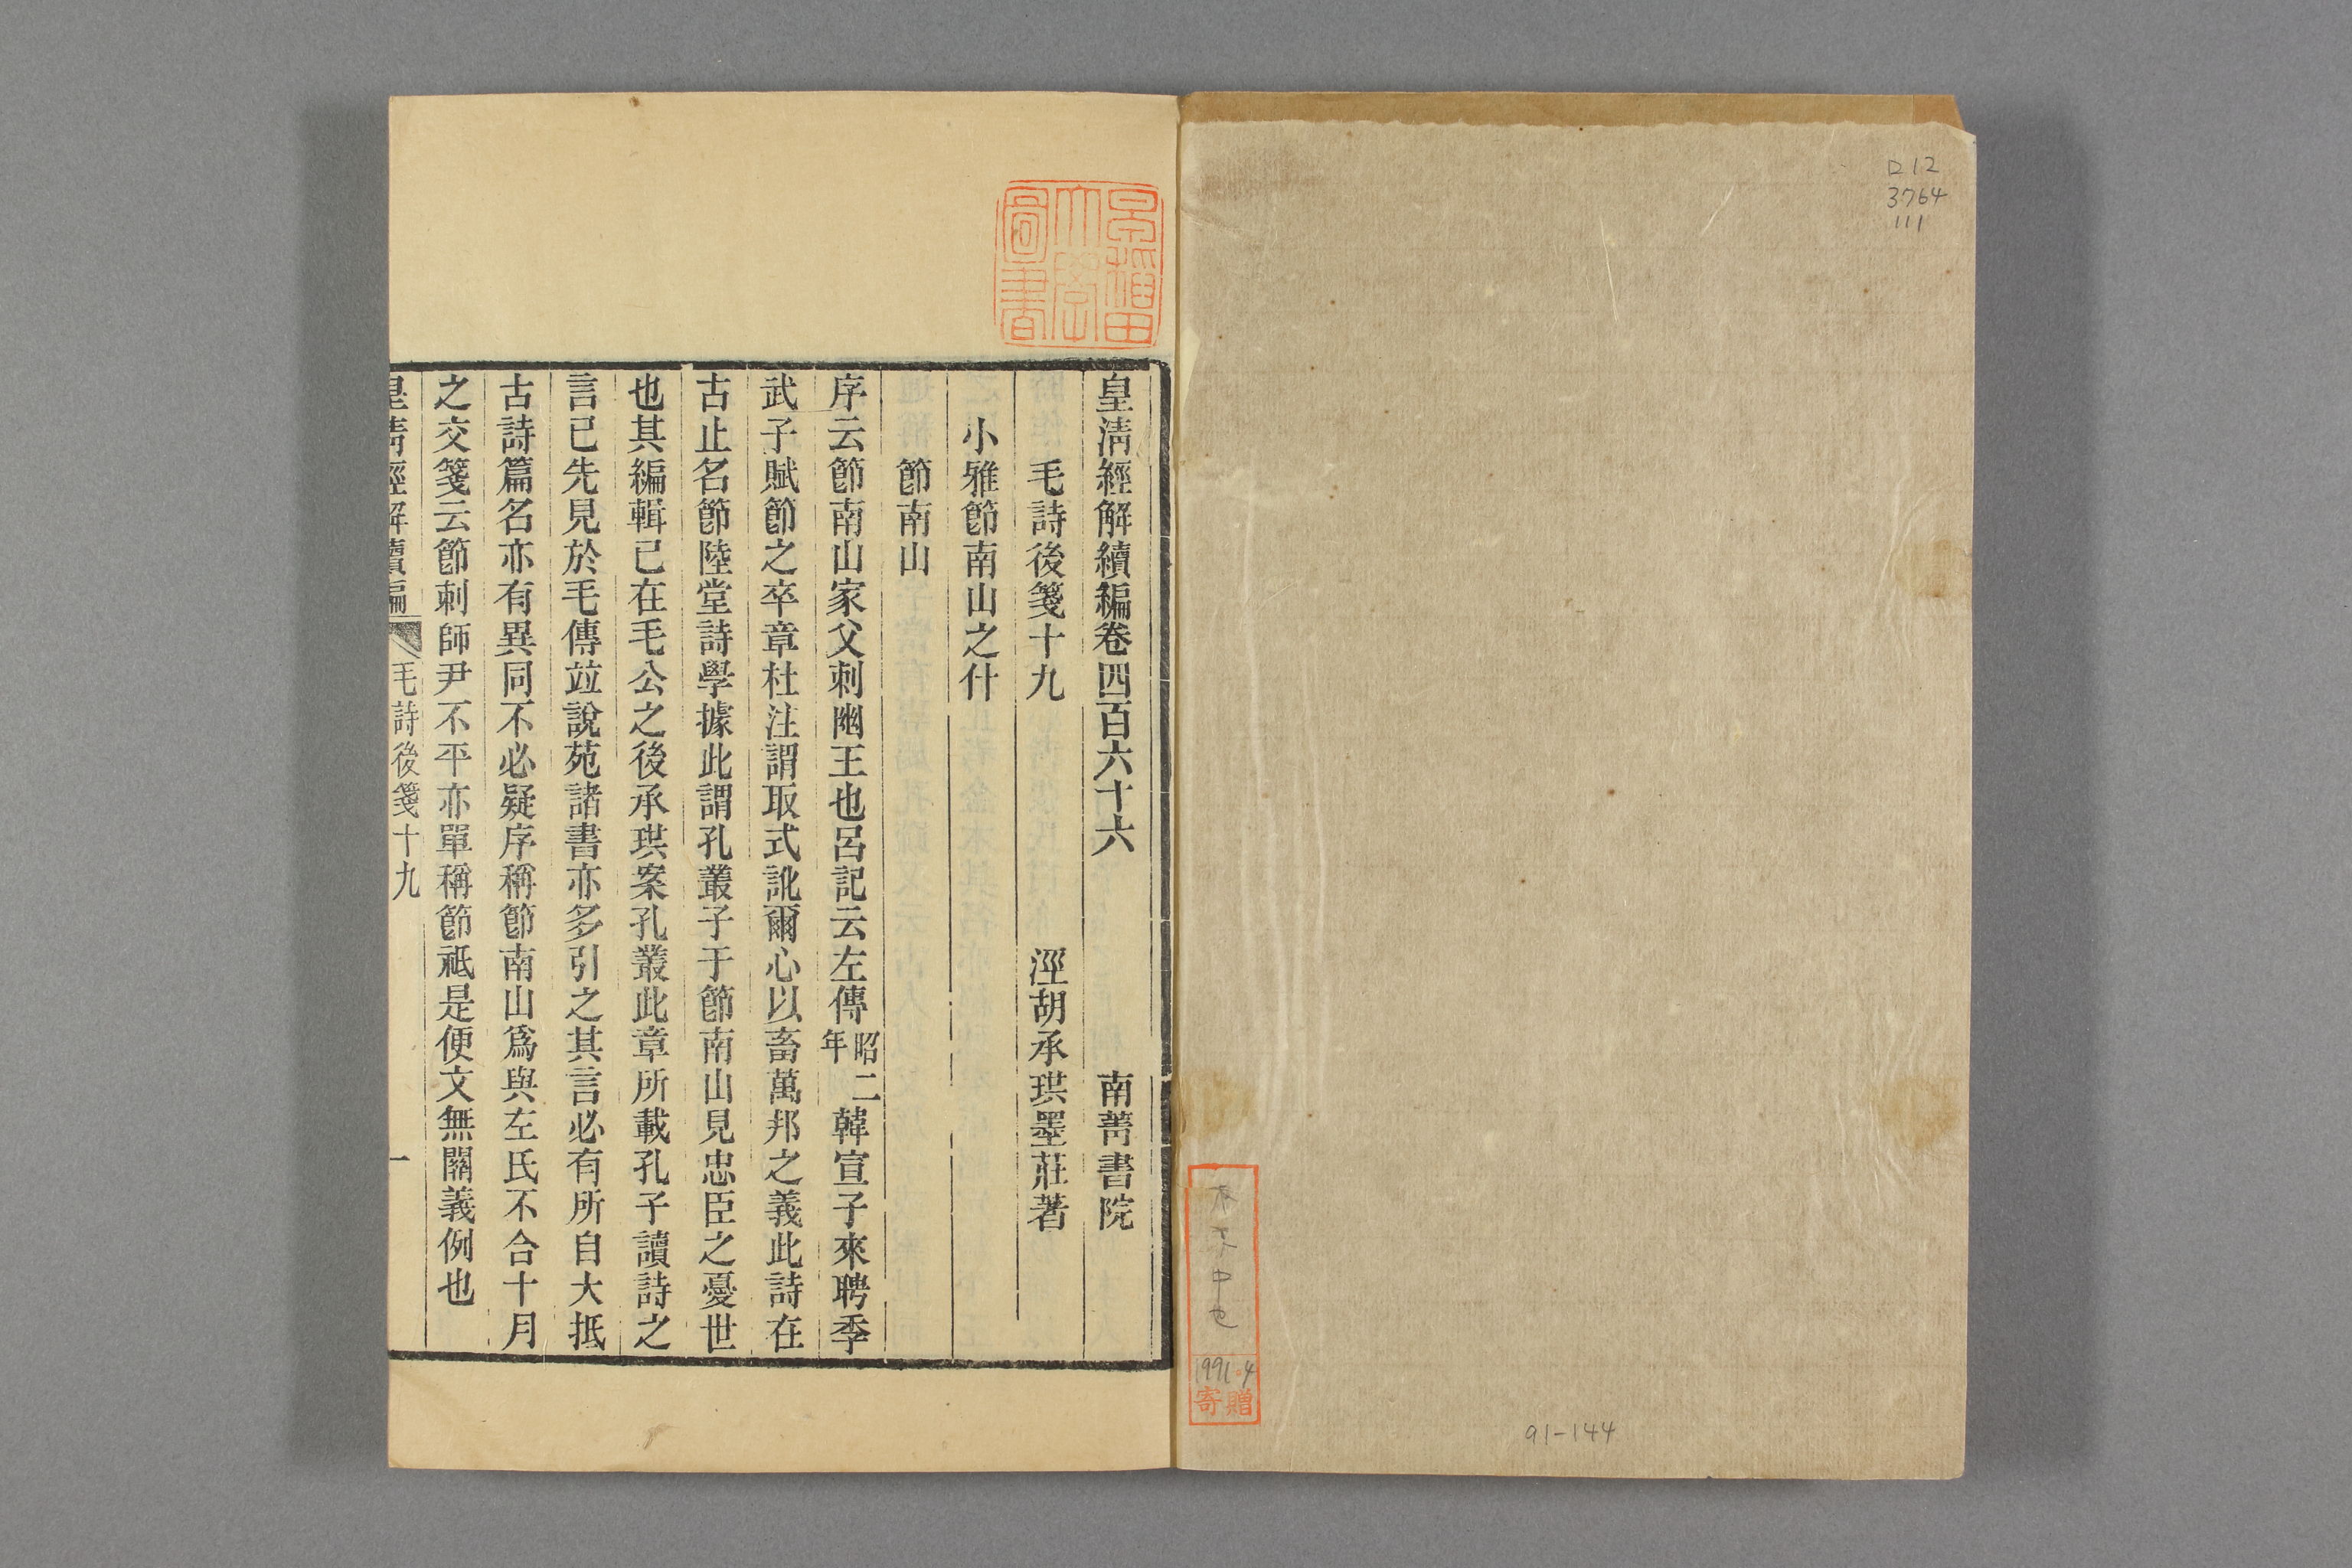 ロ12
3764
111
1991.4
寄贈
91-144
早稲田
大學
圖書
皇淸經解續編卷四百六十六 南菁書院
毛詩後箋十九 涇胡承珙墨莊著
小雅節南山之什
節南山
序云節南山家父刺幽王也呂記云左傳昭二年韓宣子來聘季
武子賦節之卒章杜注謂取式訛爾心以畜萬邦之義此詩在
古止名節陸堂詩學據此謂孔叢子于節南山見忠臣之憂世
也其編輯已在毛公之後承珙案孔叢此章所載孔子讀詩之
言已先見於毛傳竝說苑諸書亦多引之其言必有所自大抵
古詩篇名亦有異同不必疑序稱節南山爲與左氏不合十月
之交箋云節刺師尹不平亦單稱節祗是便文無關義例也
皇淸經解續編 毛詩後箋十九 一